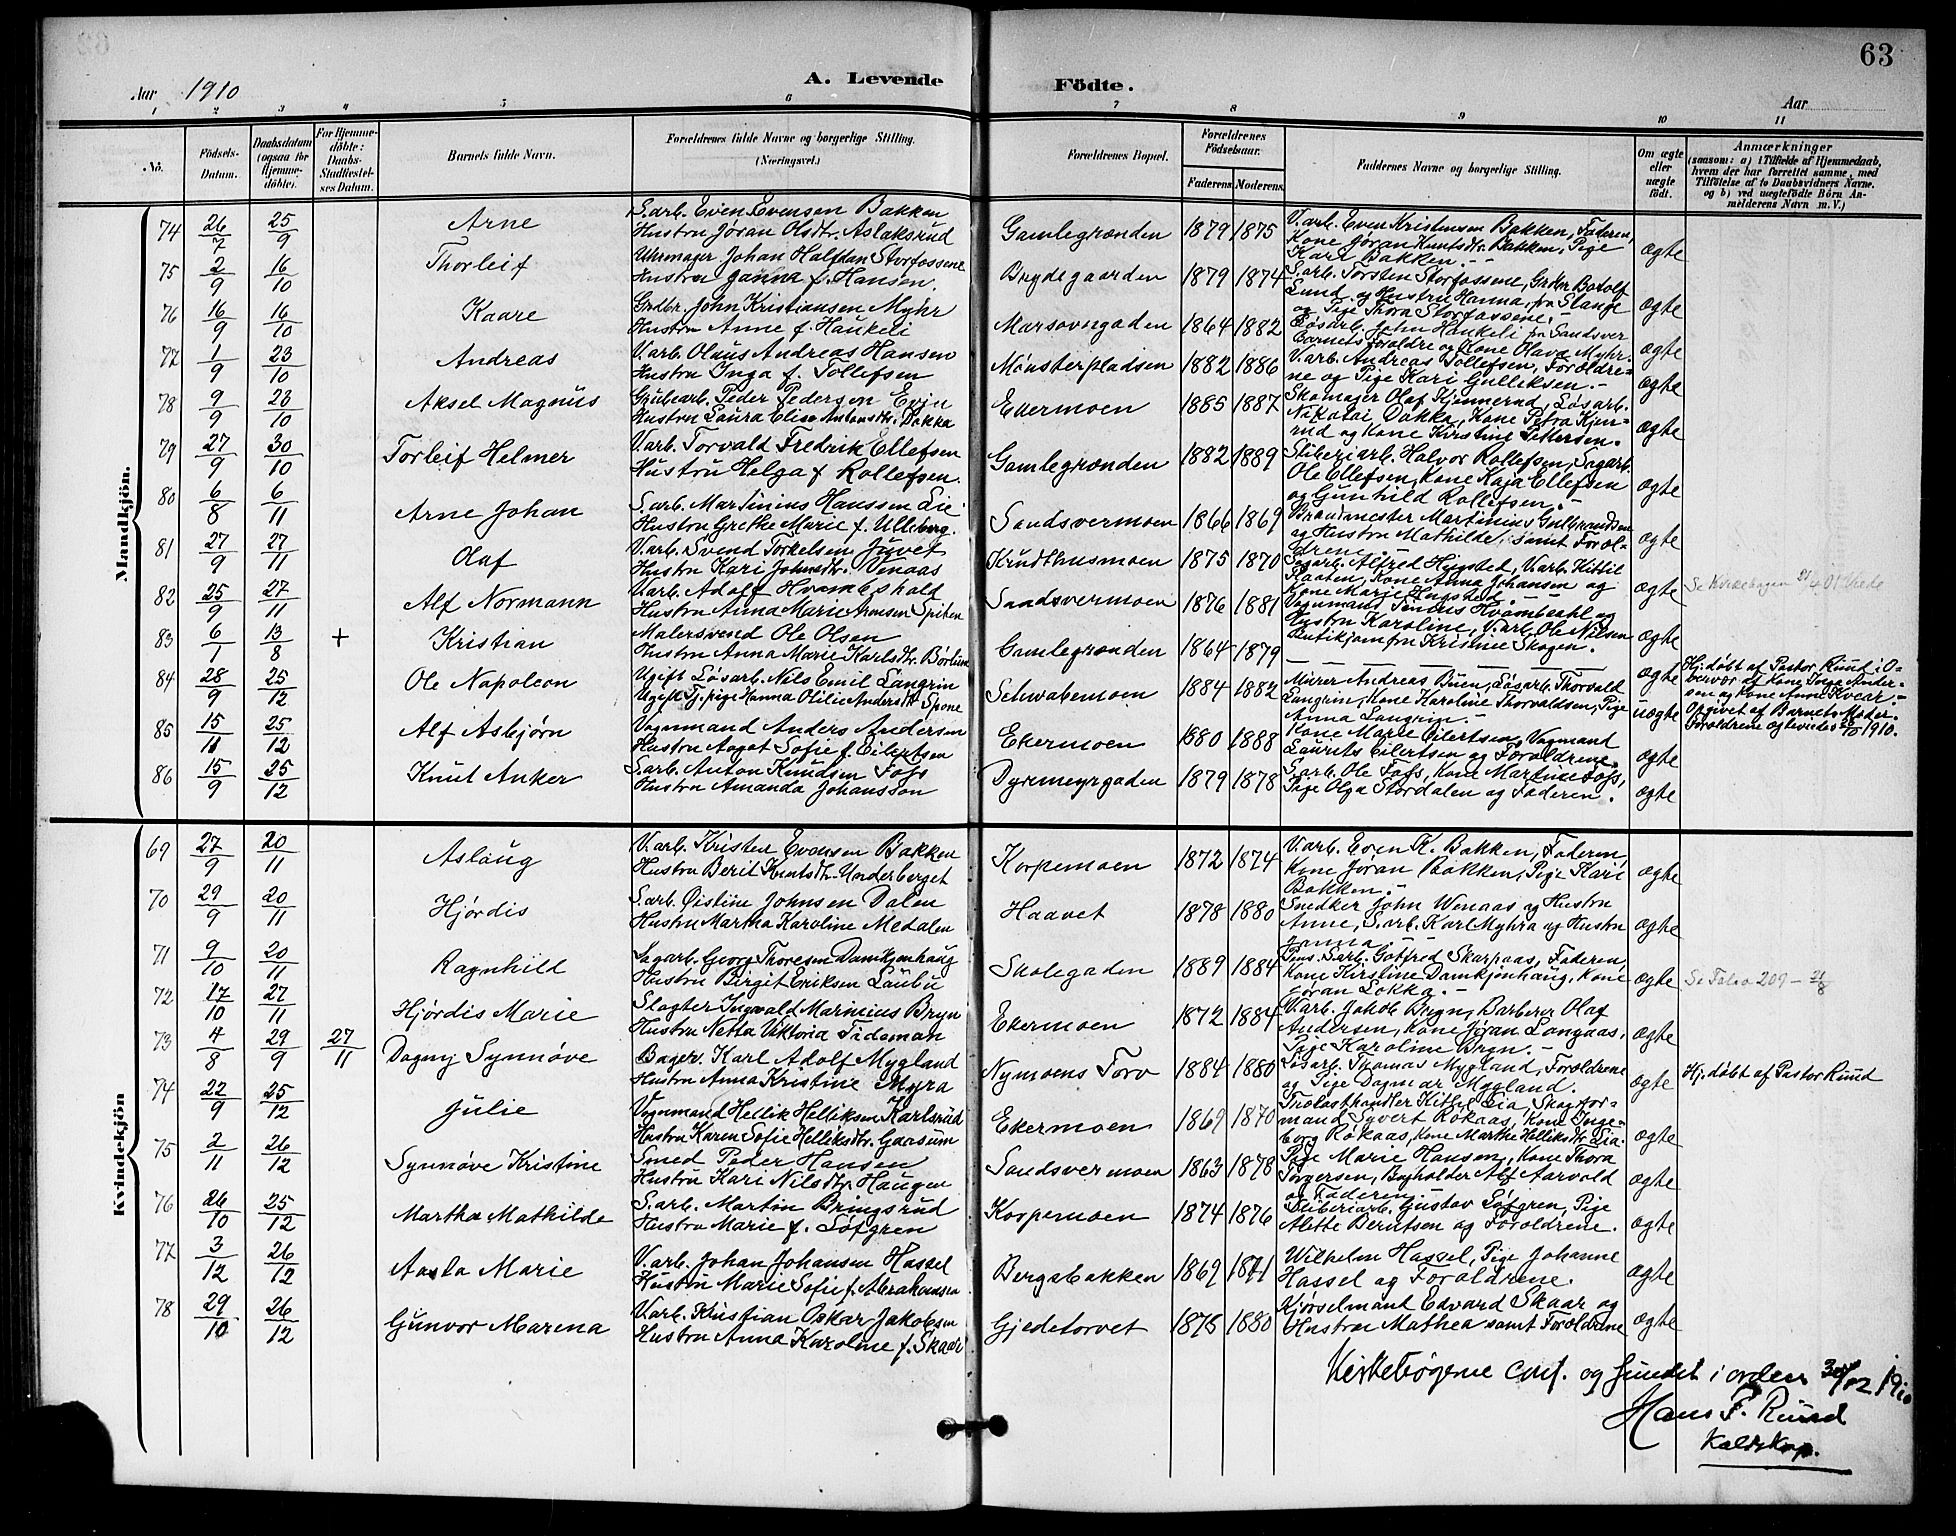 63
A. Levende Födte.
Aar 1910
Aar
1 2 3 4 5 6 7 8 9 10 11
No.
Födsels-Datum.
Daabsdatum (ogsaa for Hjemme-döbte).
For Hjemme-döbte: Daabs-Stadfæstel-ses Datum.
Barnets fulde Navn.
Forældrenes fulde Navne og borgerlige Stilling. (Næringsvei.)
Forældrenes Bopæl.
Forældrenes Födselsaar.
Faderens. Moderens.
Faddernes Navne og borgerlige Stilling.
Om ægte eller uægte födt.
Anmærkninger (saasom: a) i Tilfælde af Hjemmedaab, hvem der har forrettet samme, med Tilföielse af to Daabsvidners Navne. og b) ved uægtefödte Börn An-melderens Navn m. V.)
Mandkjön.
74 26/7 25/9 Arne S.arb. Even Evensen Bakken
Hustru Jøran Olsdtr. Aslaksrud Gamlegrænden 1879 1875 V.arb. Even Kristensen Bakken, Faderen,
Kone Jøran Knutsdtr. Bakken, Pige
Kari Bakken. - ægte
75 2/9 16/10 Thorleif Uhrmager Johan Halfdan Storfossene
Hustru Janna f. Hansen. Brydegaarden 1879 1874 S.arb. Torsten Storfossene, Grdbr. Botolf
Lund og Hustru Hanna, fra Stange
og Pige Thora Storfossene. - ægte
76 16/9 16/10 Kaare Grdbr. John Kristiansen Myhr
Hustru Anne f. Haukeli Marsovngaden 1864 1882 Løsarb. John Haukeli fra Sandsver
Barnets Foroldre og Kone Olava Myhr. ægte
77 1/9 23/10 Andreas V.arb. Olaus Andreas Hansen
Hustru Inga f. Tollefsen Mønsterpladsen 1882 1886 V.arb. Andreas Tollefsen, Foroldre-
ne og Pige Kari Gulliksen. - ægte
78 9/9 23/10 Aksel Magnus Grubearb. Peder Pedersen Evju
Hustru Laura Elise Antonsdtr. Dokka Ekermoen 1885 1887 Skomager Olaf Kjennerud, Løsarb.
Nikolai Dokka, Kone Petra Kjen-
rud og Kone Kirstine Pettersen. ægte
79 27/9 30/10 Torleif Helmer V.arb. Torvald Fredrik Ellefsen
Hustru Helga f Rollefsen. Gamlegrænden 1882 1889 Sliberiarb. Halvor Rollefsen, Sagarb.
Ole Ellefsen, Kone Kaja Ellefsen
og Gunhild Rollefsen. - ægte
80 6/8 6/11 Arne Johan S.arb. Martinius Hanssen Lie
Hustru Grethe Marie f. Ulleberg. Sandsvermoen 1866 1869 Brandmester Martinius Gulbrandsen
og Hustru Mathilde, samt Forol-
drene. ægte
81 27/9 27/11 Olaf V.arb. Svend Torkelsen Juvet
Hustru Kari Johnsdtr. Venaas Krudthusmoen 1875 1870 Sagarb. Alfred Hugsted, V.arb. Kittil
Plaaten, Kone Anna Johansen og
Kone Marie Hugsted. - ægte
82 25/9 27/11 Alf Normann V.arb. Adolf Hvambsdahl
Hustru Anna Marie Arnesen Spiten Sandsvermoen 1876 1881 Vognmand Tinius Hvambsahl og
Hustru Karoline, V.arb. Ole Nilsen
Butikjomfru Kristine Skogen. ægte
83 6/1 13/8 + Kristian Malersvend Ole Olsen
Hustru Anna Marie Karlsdtr. Børlum Gamlegrænden 1864 1879 — — — — ægte Hj. døbt af Pastor Ruud. O-
bervær. af Kone Inga Ander-
sen og Kone Anne Kvear. -
84 28/9 25/12 Ole Napoleon Ugift Løsarb. Nils Emil Langrin
Ugift Tj. pige Hanna Otilie Andersdtr. Spone Schwabemoen 1884 1882 Murer Andreas Buen, Løsarb. Thorvald
Langrin, Kone Karoline Thorvaldsen, Pige
Anna Langrin. - uægte Opgivet af Barnets Moder.
Foroldrene ægteviedes 1910.
85 15/11 25/12 Alf Asbjørn Vognmand Anders Andersen
Hustru Aagot Sofie f. Eilertsen Ekermoen 1880 1888 Kone Marie Eilertsen, Vogmand
Laurits Eilertsen og Foroldrene. ægte
86 15/9 25/12 Knut Anker S.arb. Anton Knudsen Fofs
Hustru Amanda Johansson Dyrmyrgaden 1879 1878 S.arb. Ole Fofs, Kone Martine Fofs,
Pige Olga Stordalen og Faderen. ægte
Se Kirkebogen
Kvindekjön
69 27/9 20/11 Aslaug V.arb. Kristen Evensen Bakken
Hustru Berit Knutsdtr. Underberget Korpemoen 1872 1874 V.arb. Even K. Bakken, Faderen,
Kone Jøran Bakken, Pige Kari
Bakken. - ægte
70 29/9 20/11 Hjørdis S.arb. Øistine Johnsen Dalen
Hustru Martha Karoline Medalen Haavet 1878 1880 Snedker John Wenaas og Hustru
Anne, S.arb. Karl Myhra og Hustru
Janna. ægte
71 9/10 20/11 Ragnhild Sagarb. Georg Thoresen Damkjønhaug
Hustru Birgit Eriksen Laubu Skolegaden 1889 1884 S.arb. Gotfred Skarpaas, Faderen,
Kone Kirstine Damkjønhaug, Kone
Jøran Lokka. - ægte Se Folio 209 - 21/8
72 17/10 27/11 Hjørdis Marie Slagter Ingvald Marinius Bryn
Hustru Netta Viktoria Tideman Ekermoen 1872 1884 V.arb. Jakob Bryn, Barberer Olaf
Andersen, Kone Jøran Langaas,
Pige Karoline Bryn. - ægte
73 4/8 29/9 27/11 Dagny Synnøve Bager. Karl Adolf Mygland
Hustru Anna Kristine Myra Nymoens Torv 1884 1880 Løsarb. Thomas Mygland, Foroldrene
og Pige Dagmar Mygland. ægte Hj. døbt af Pastor Ruud
74 22/9 25/12 Julie Vognmand Hellik Helliksen Karlsrud
Hustru Karen Sofie Helliksdtr. Gaasum Ekermoen 1869 1870 Trælasthandler Kittil Lia, Skogfor-
mand Syvert Rokaas, Kone Inge-
borg Røkaas, Kone Marthe Helliksdtr. Lia. ægte
75 2/11 26/12 Synnøve Kristine Smed Peder Hansen
Hustru Kari Nilsdtr. Haugen Sandsvermoen 1863 1878 Pige Marie Hansen, Kone Thora
Torgersen, Bogholder Alf Aarvold
og Faderen. ægte
76 26/10 25/12 Martha Mathilde S.arb. Martin Bringsrud
Hustru Marie f. Løfgren Korpemoen 1874 1876 Sliberiarb. Gustav Løfgren, Pige
Alette Berntsen og Foroldrene. ægte
77 3/12 26/12 Aasta Marie V.arb. Johan Johansen Hassel
Hustru Marie Sofie f. Abrahamsen Bergsbakken 1869 1871 Wilhelm Hassel, Pige Johanne
Hassel og Foroldrene. ægte
78 29/10 26/12 Gunvor Marena V.arb. Kristian Oskar Jakobsen
Hustru Anna Karoline f. Skaar Gjedetorvet 1875 1880 Kjørselmand Edvard Skaar og
Hustru Mathea samt Foroldrene ægte
Kirkebøgene conf. og fundet i orden 30/12 1910
Hans P. Ruud